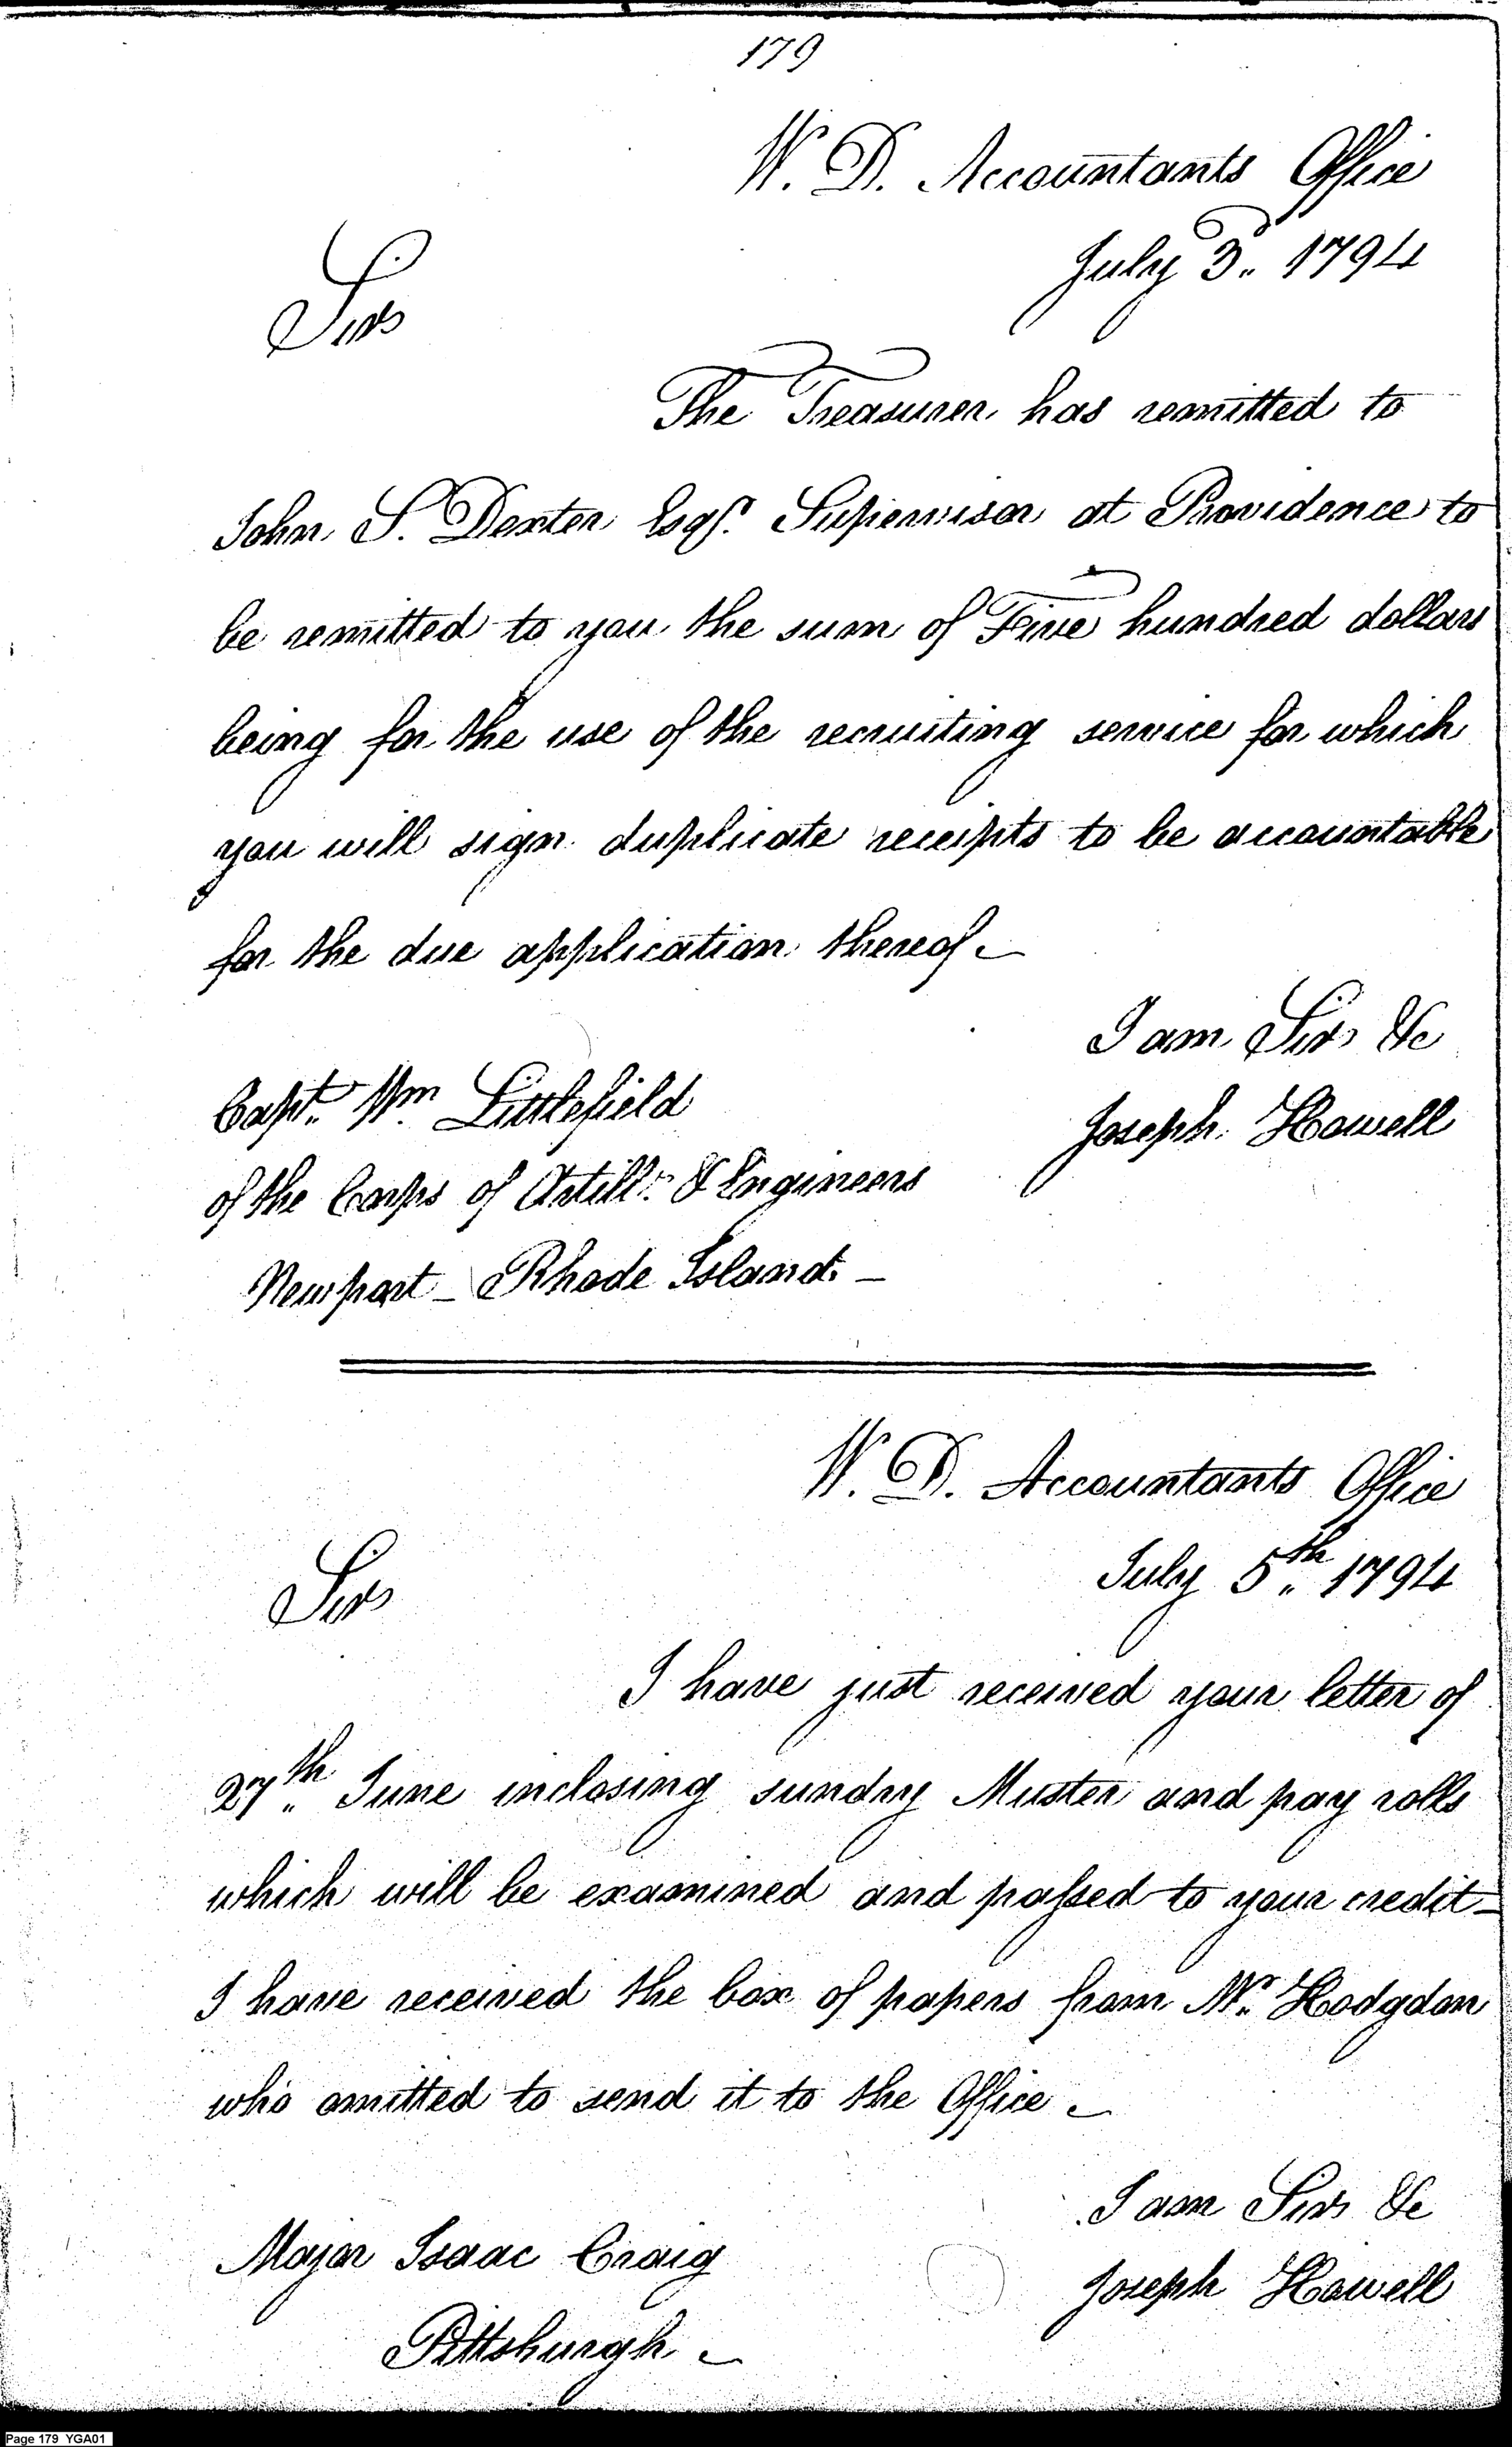 179
W. D. Accountants Office
July 3d. 1794
Sir
The Treasurer has remitted to
John S. Dexter Esqr. Supervisor at Providence to
be remitted to you the sum of Five hundred dollars
being for the use of the recruiting service for which
you will sign duplicate receipts to be accountable
for the due application thereof
I am Sir &c
Joseph Howell
Capt. Wm. Littlefield
of the Corps of Artilly. & Engineers
Newport - Rhode Island. -
W. D. Accountants Office
July 5th. 1794
Sir
I have just received your letter of
27th. June inclosing sundry Muster and pay rolls
which will be examined and passed to your credit -
I have received the box of papers from Mr. Hodgdon
who omitted to send it to the Office -
I am Sir &c
Joseph Howell
Major Isaac Craig
Pittsburgh -
Page 179 YGA01